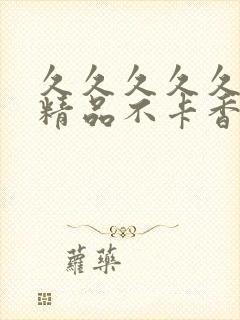 久久久久久
精品不卡香
蘿藥